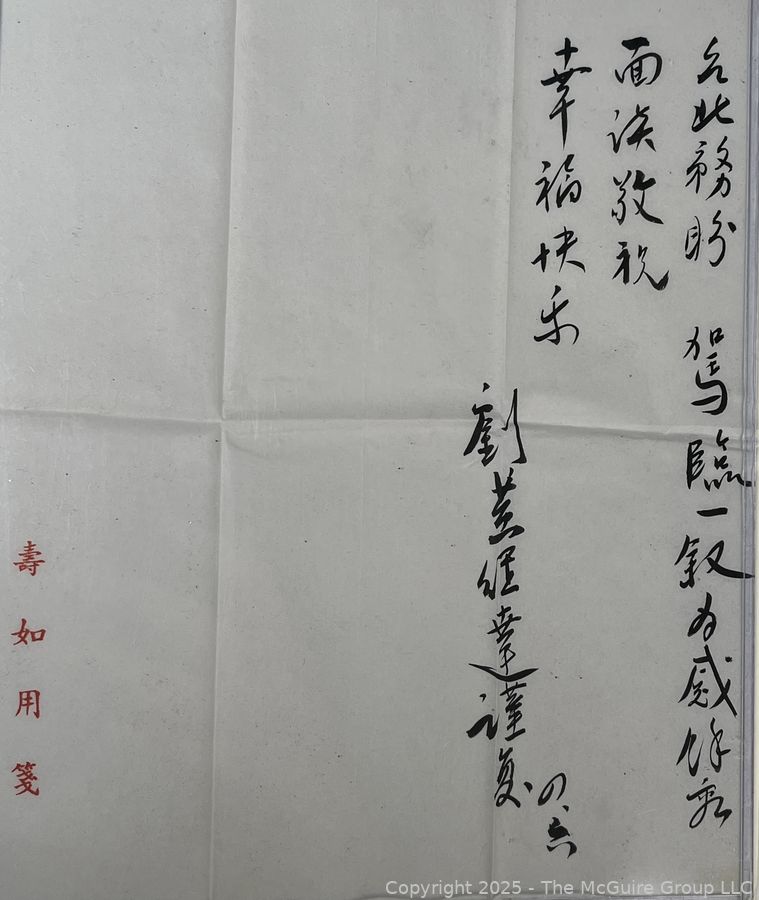 此務盼 駕臨一叙为感餘容
面谈敬祝
幸福快乐
劉達謹复
四、六
壽如用箋
Copyright 2025 - The McGuire Group LLC